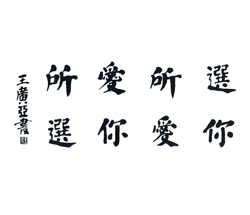 選你
所愛
愛你
所選
王廣亞書